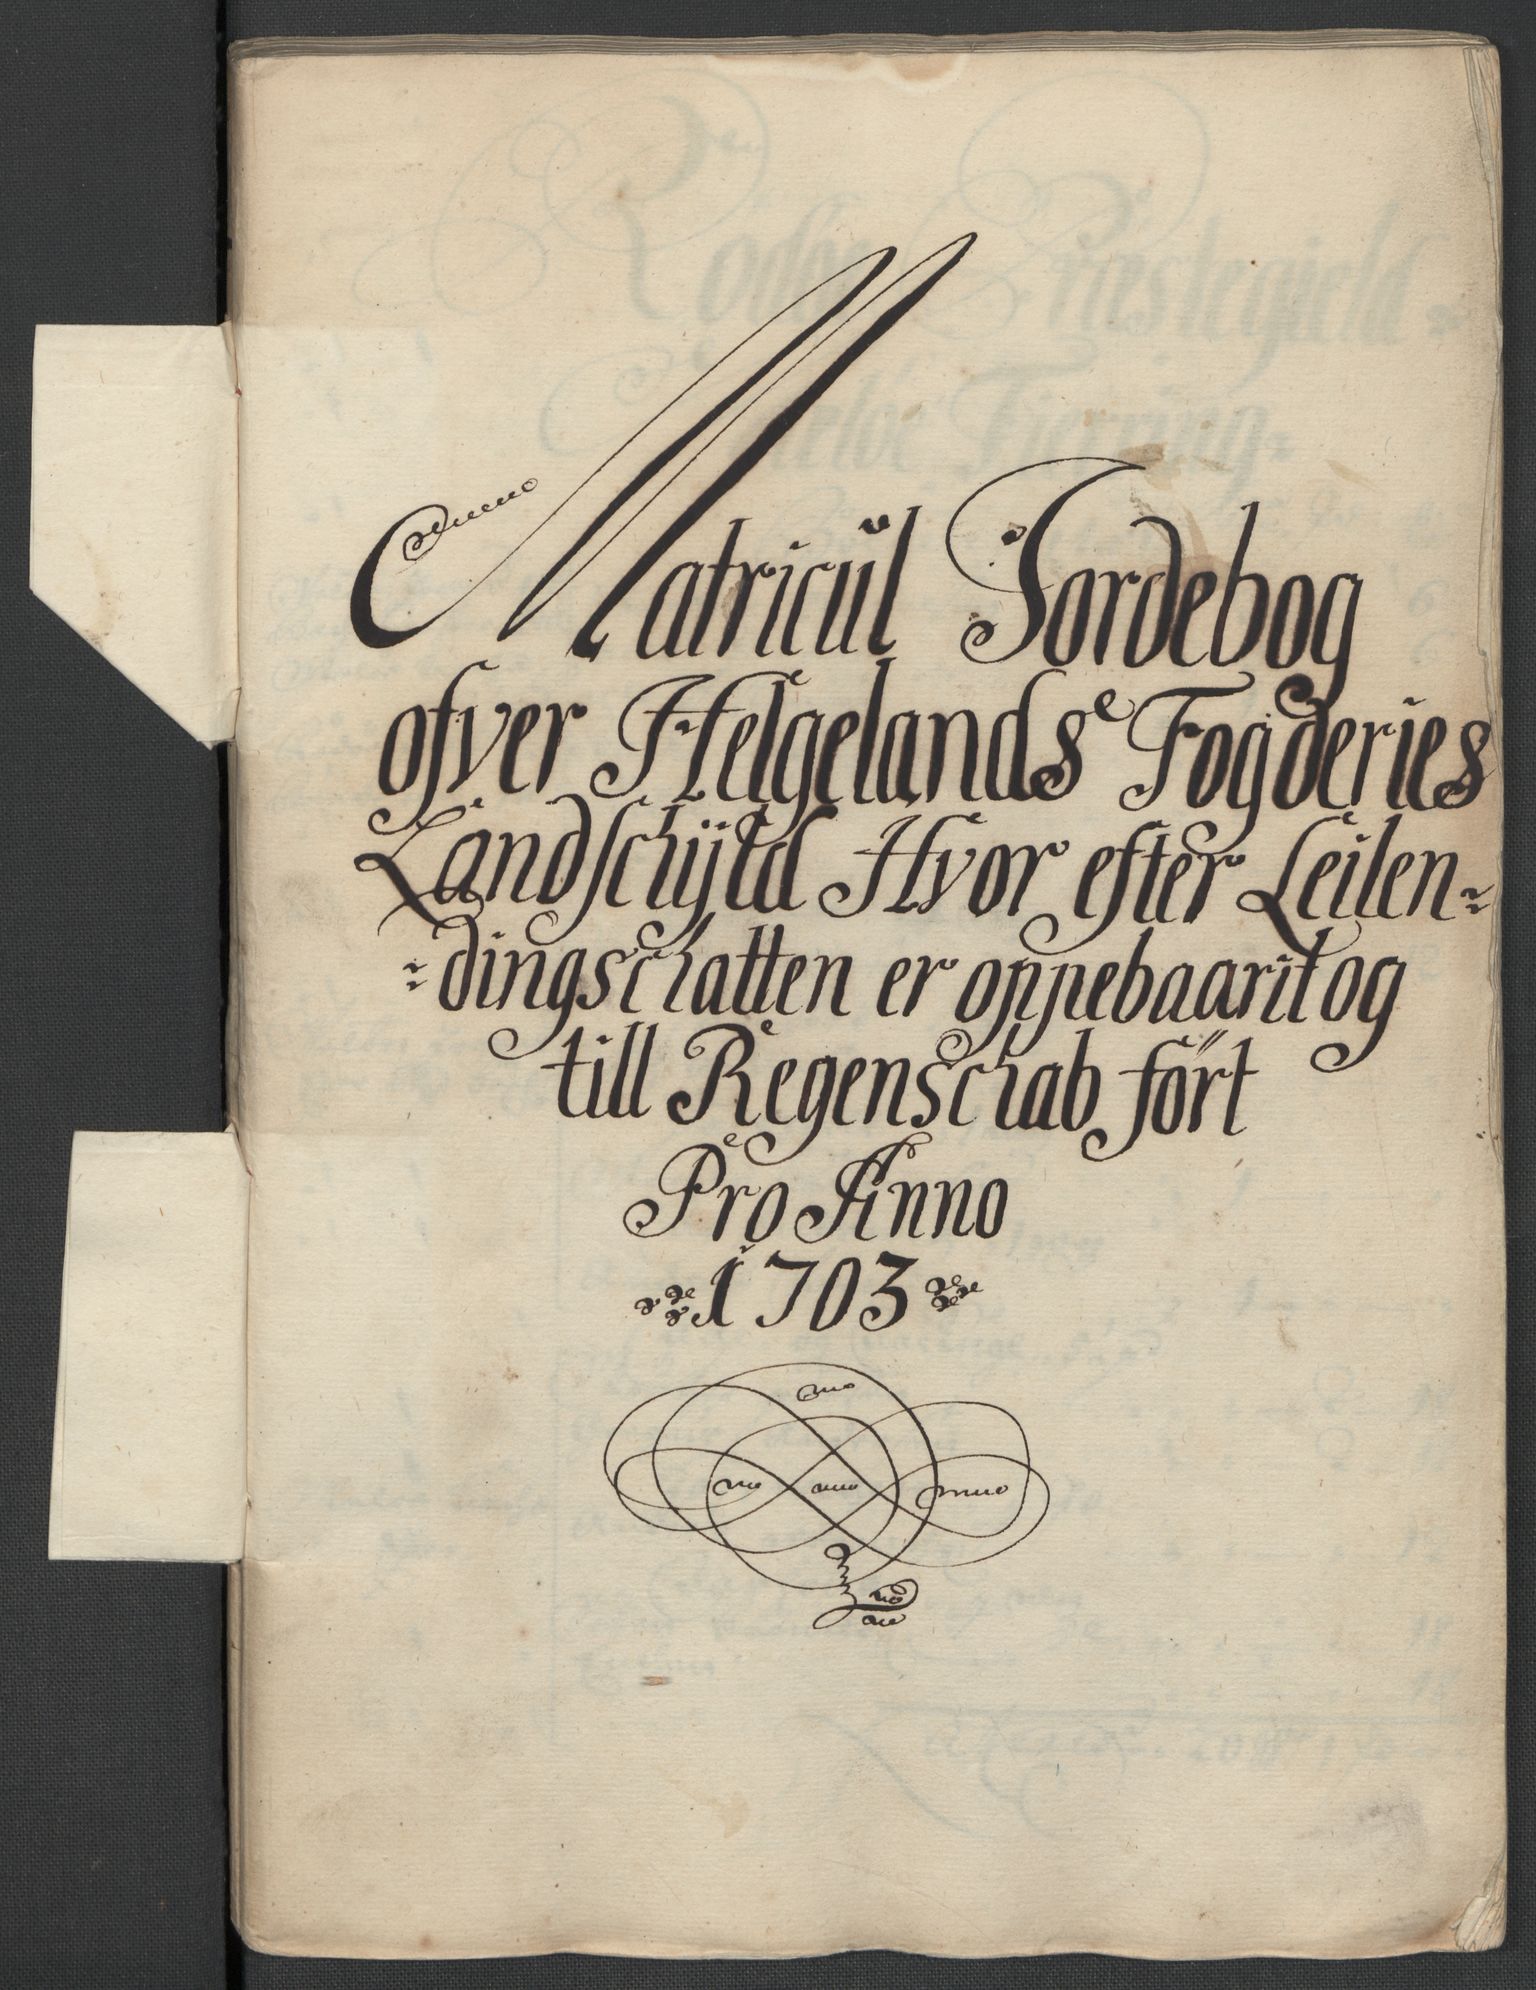 Matricul Jordebog
ofver Helgelands Fogderies
Landschÿld Hvor efter Leilen=
=dingschatten er oppebaarit og
till Regenschab fört
Pro Anno
1703